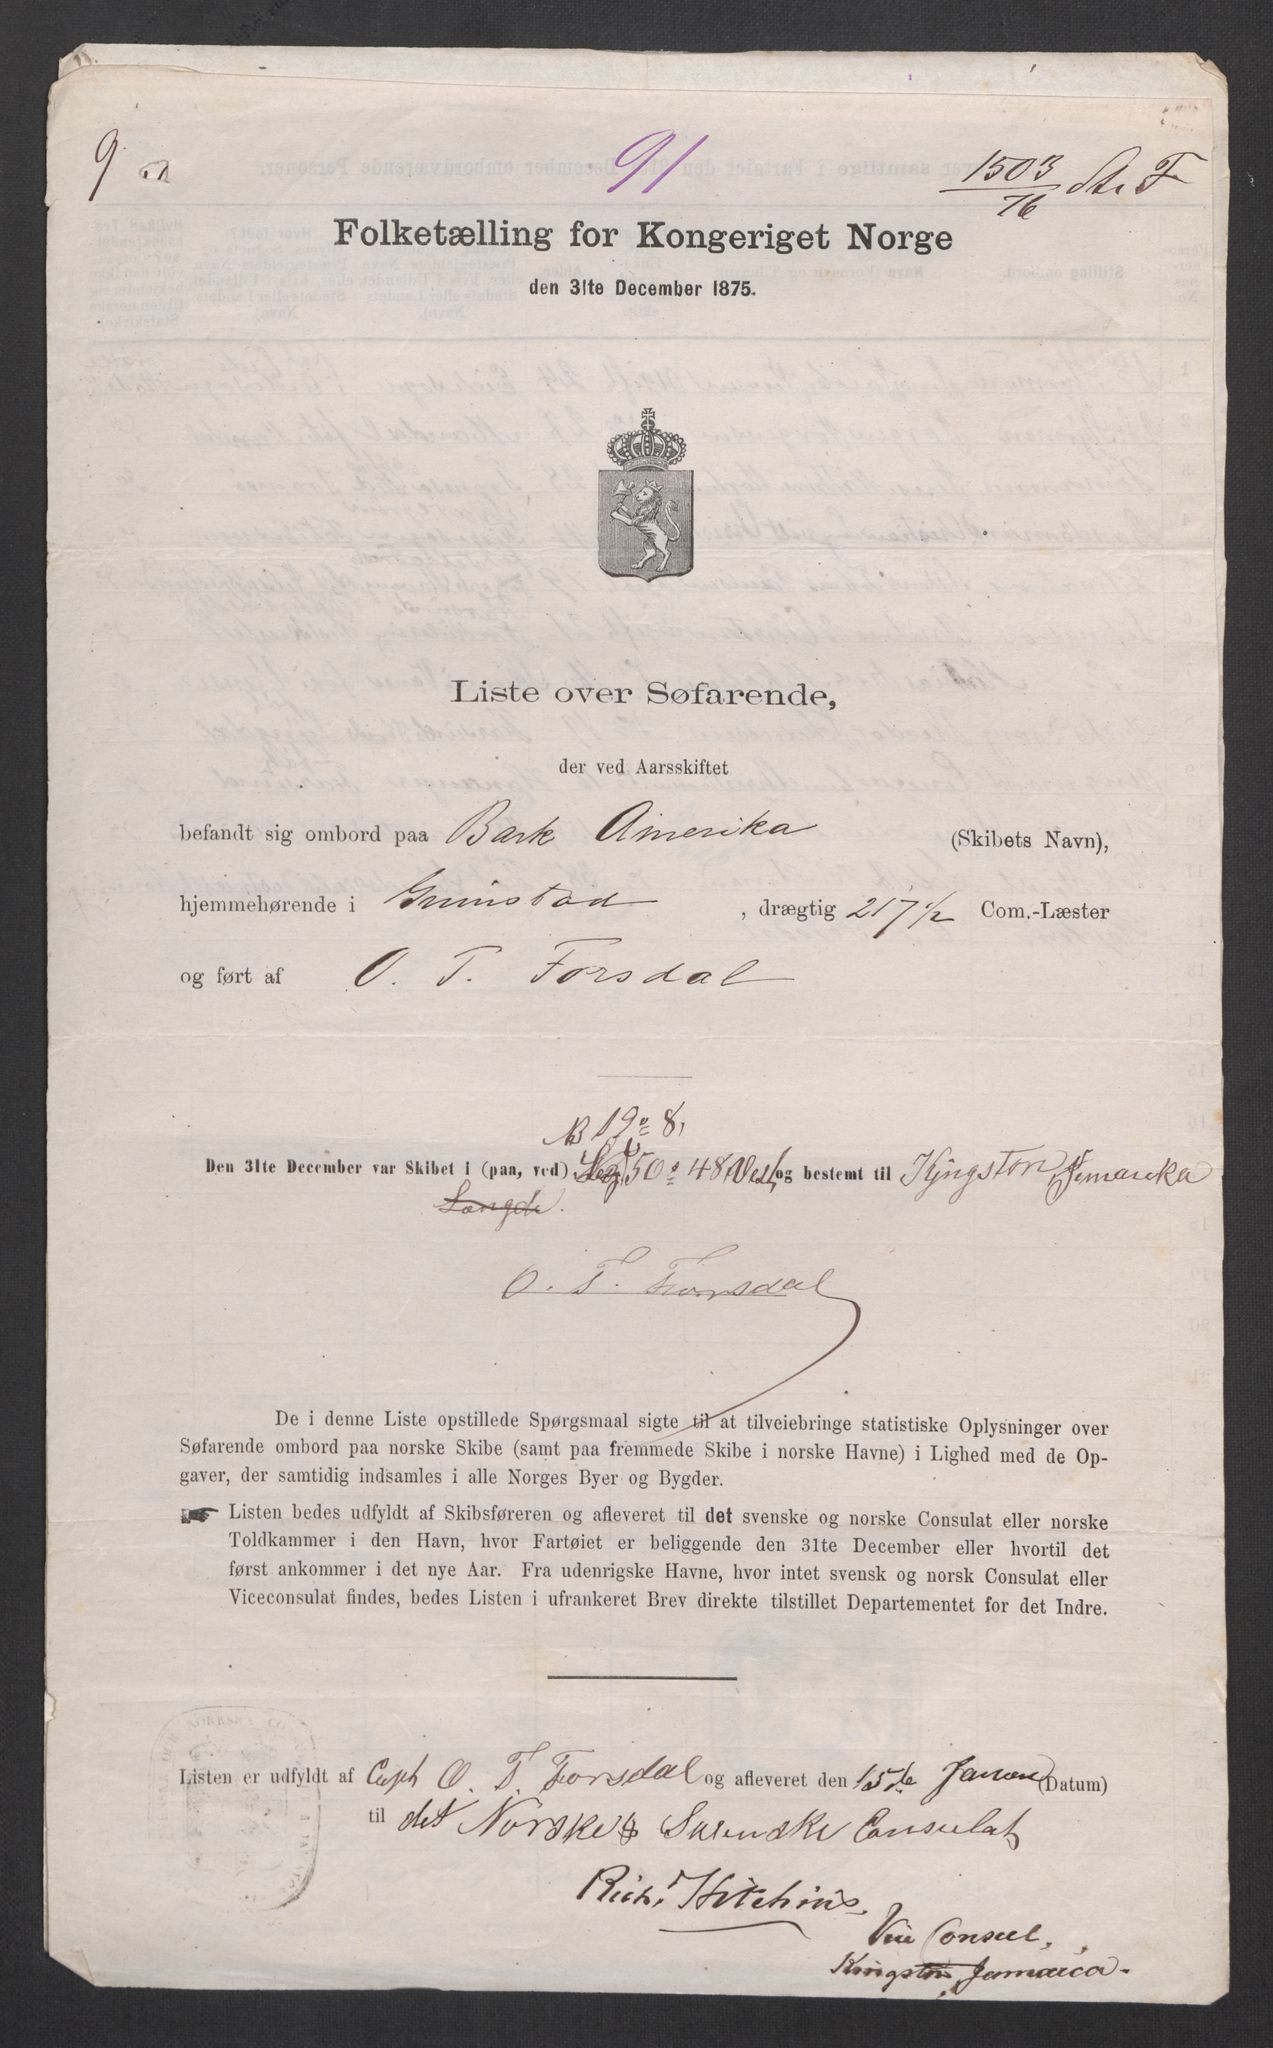 9
91
1503
76
Folketælling for Kongeriget Norge
den 31te December 1875.
Liste over Søfarende,
der ved Aarsskiftet
befandt sig ombord paa Bark Amerika (Skibets Navn),
hjemmehørende i Grimstad, drægtig 217 1/2 Com.-Læster
og ført af O. T. Forsdal
NB 19° 8,
Den 31te December var Skibet i (paa, ved) 50° 48 Vest, og bestemt til Kingston, Jemaeka
Længde.
O. T. Forsdal
De i denne Liste opstillede Spørgsmaal sigte til at tilveiebringe statistiske Oplysninger over
Søfarende ombord paa norske Skibe (samt paa fremmede Skibe i norske Havne) i Lighed med de Op-
gaver, der samtidig indsamles i alle Norges Byer og Bygder.
☛ Listen bedes udfyldt af Skibsføreren og afleveret til det svenske og norske Consulat eller norske
Toldkammer i den Havn, hvor Fartøiet er beliggende den 31te December eller hvortil det
først ankommer i det nye Aar. Fra udenrigske Havne, hvor intet svensk og norsk Consulat eller
Viceconsulat findes, bedes Listen i ufrankeret Brev direkte tilstillet Departementet for det Indre.
Listen er udfyldt af Capt O. T. Forsdal og afleveret den 15de Januar (Datum)
til det Norske & Svenske Consulat
Richd Hitchins.
Vice Consul,
Kingston, Jamaica.